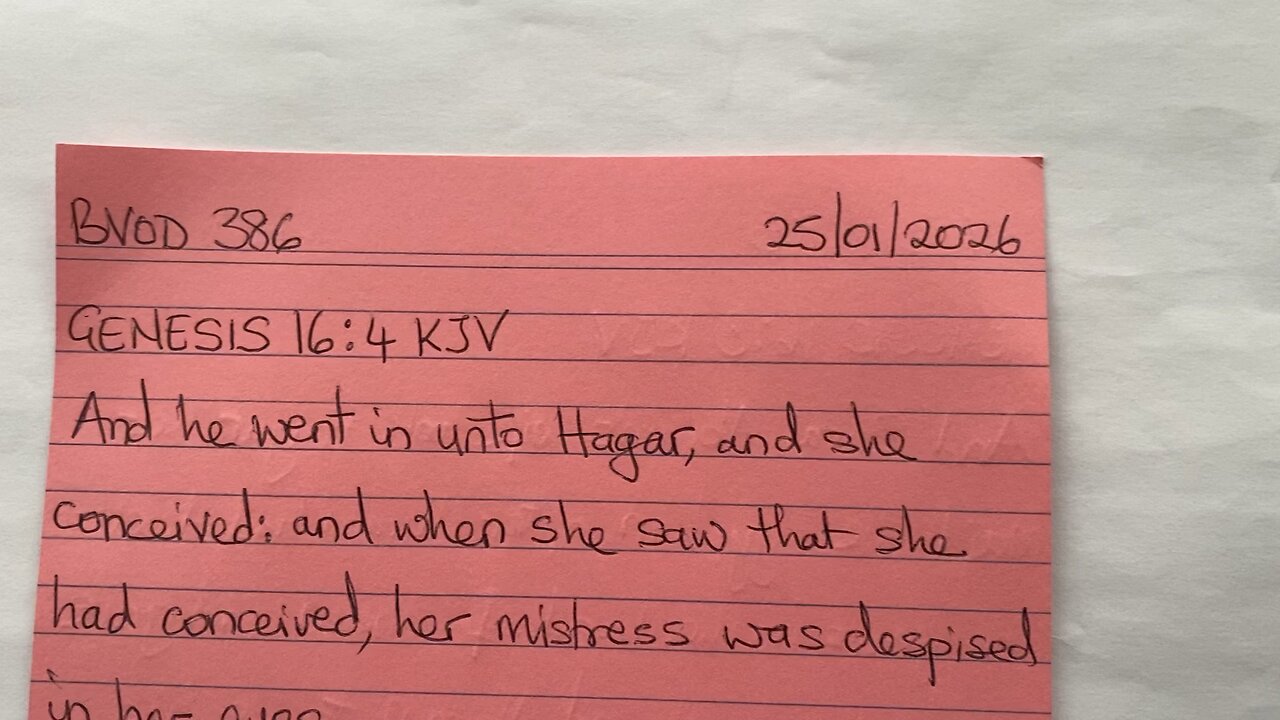 BVOD 386 25/01/2026
GENESIS 16:4 KJV
And he went in unto Hagar, and she
conceived: and when she saw that she
had conceived, her mistress was despised
in her eyes